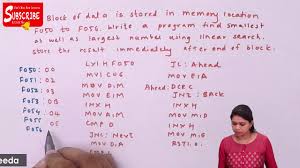 SUBSCRIBE
Block of data is stored in memory location
F050 to F056. Write a program find smallest
as well as largest number using linear search.
store the result immediately after end of block.
F050 : 00
F051 : 02
F052 : 08
F053 : 03
F054 : 04
F055 : 05
F056
MVI C06
MOV D,M
MOV E,M
INX H
MOV A,M
CMP D
JNC: Next
MOV D,A
JC: Ahead
MOV E,A
Ahead: DCR C
JNZ: Back
INX H
MOV M,D
INX H
MOV M,E
RST1.
eeda